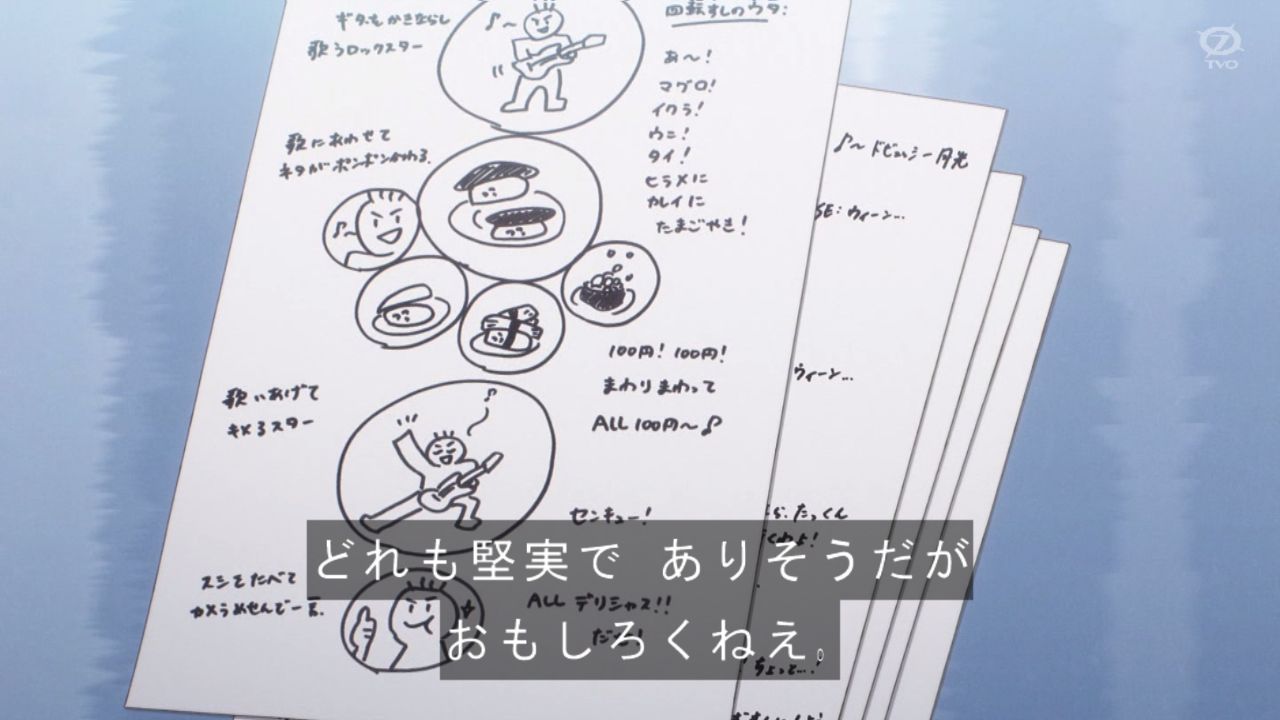 ギターもかきならし
歌うロックスター
♪～
回転すしのウタ:
あ～!
マグロ!
イクラ!
ウニ!
タイ!
ヒラメに
カレイに
たまごやき!
歌にあわせて
ネタがポンポンかわる.
♪～
100円! 100円!
まわりまわって
ALL 100円～♪
歌いあげて
キメるスター
♪
センキュー!
スシをたべて
カメラめせんで一言.
ALL デリシャス!!
♪～ドビュッシー月光
SE: ウィーン…
ウィーン…
たっくん
ちょっと…!
TVO
どれも堅実で ありそうだが
おもしろくねえ。